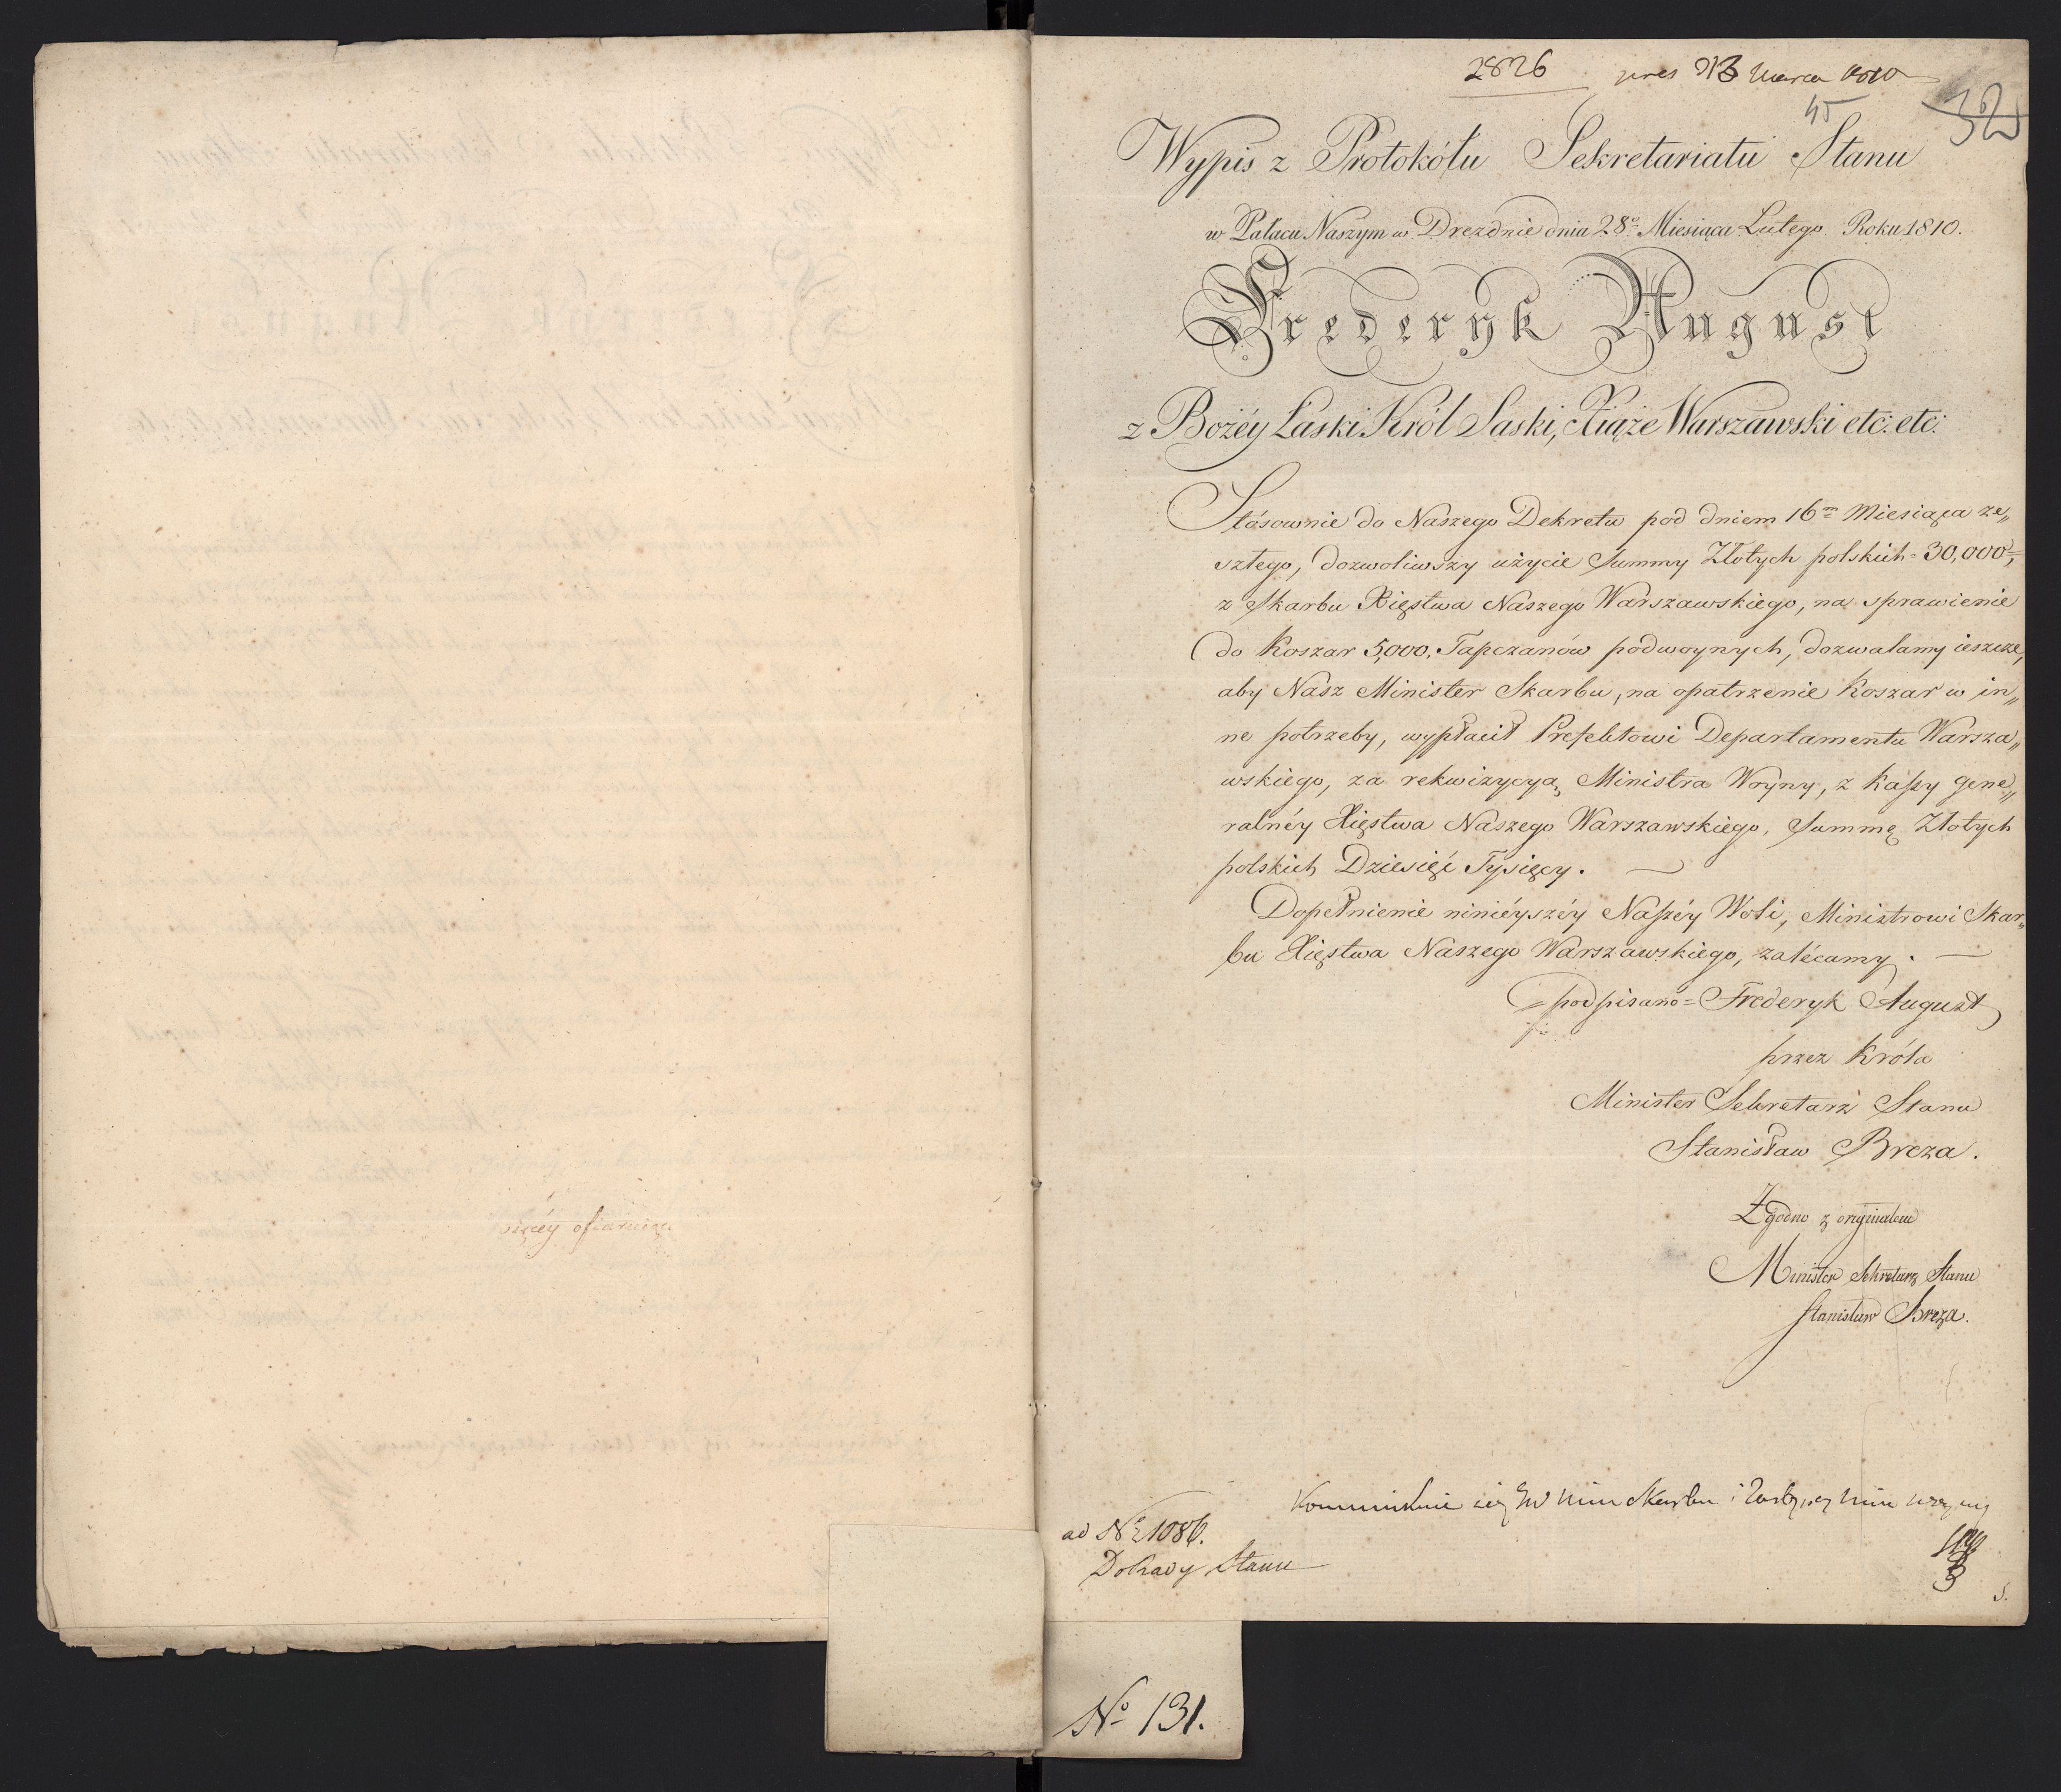 2826 pres 13 Marca 1810
45
32
Wypis z Protokółu Sekretariatu Stanu
w Pałacu Naszym w Dreznie dnia 28º Miesiąca Lutego Roku 1810.
Frederyk August
z Bożéy Łaski Król Saski, Xiąże Warszawski etc: etc:
Stósownie do Naszego Dekretu pod dniem 16m Miesiąca ze„
szłego, dozwoliwszy użycie Summy Złotych polskich = 30,000 =,
z Skarbu Xięstwa Naszego Warszawskiego, na sprawienie
do Koszar 5,000, Tapczanów podwoynych, dozwalamy ieszcze,
aby Nasz Minister Skarbu, na opatrzenie Koszar w in„
ne potrzeby, wypłacił Prefektowi Departamentu Warsza„
wskiego, za rekwizycyą Ministra Woyny, z Kaſsy gene„
ralnéy Xięstwa Naszego Warszawskiego, Summę Złotych
polskich Dziesięć Tysięcy. —
Dopełnienie ninieyszéy Naſzéy Woli, Ministrowi Skar„
bu Xięstwa Naszego Warszawskiego, zalécamy. —
= podpisano = Frederyk August
przez Króla
Minister Sekretarz Stanu
Stanisław Breza.
Zgodno z oryginałem
Minister Sekretarz Stanu
Stanisław Breza.
więcéy ofiaruiąc
Kommunikuie się JW Min Skarbu i Min woyny
ad Nº 1086.
Do Rady Stanu
S.
Nº 131.